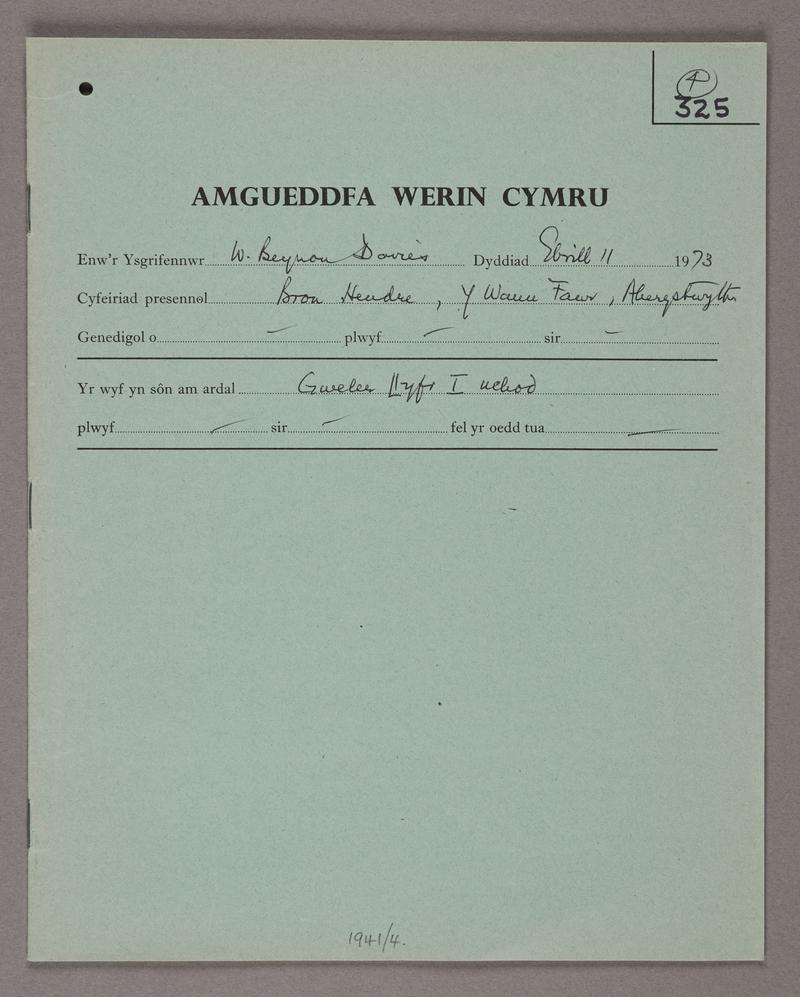 4
325
AMGUEDDFA WERIN CYMRU
Enw'r Ysgrifennwr W. Beynon Davies Dyddiad Ebrill 11 1973
Cyfeiriad presennol Bron Hendre, Y Waun Fawr, Aberystwyth
Genedigol o — plwyf — sir —
Yr wyf yn sôn am ardal Gweler Llyfr I uchod
plwyf — sir — fel yr oedd tua —
1941/4.